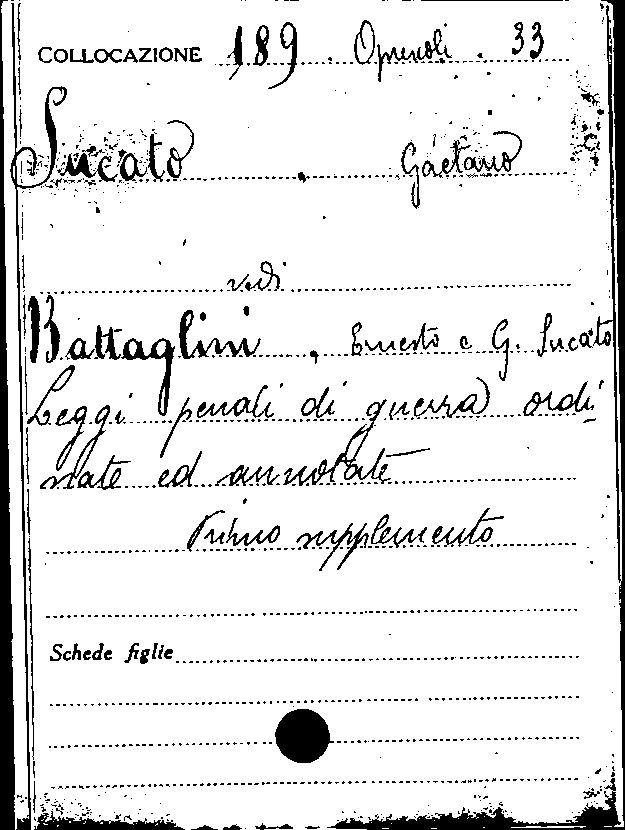 COLLOCAZIONE 189 . Opuscoli . 33
Sucato , Gaetano
vedi
Battaglini , Ernesto e G. Sucato
Leggi penali di guerra ordi-
nate ed annotate
Primo supplemento
Schede figlie